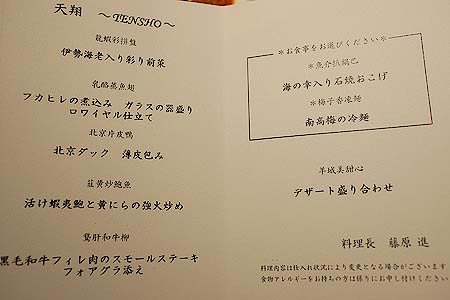 天翔　～TENSHO～
龍蝦彩拼盤
伊勢海老入り彩り前菜
乳酪蒸魚翅
フカヒレの煮込み　ガラスの器盛り
ロワイヤル仕立て
北京片皮鴨
北京ダック　薄皮包み
韮黄炒鮑魚
活け蝦夷鮑と黄にらの強火炒め
鵞肝和牛柳
黒毛和牛フィレ肉のスモールステーキ
フォアグラ添え
＊お食事をお選びください＊
＊魚介扒鍋巴
海の幸入り石焼おこげ
＊梅子香凍麺
南高梅の冷麺
羊城美甜心
デザート盛り合わせ
料理長　藤原 進
料理内容は仕入れ状況により変更となる場合がございます
食物アレルギーをお持ちの方は係りにお申し付けください